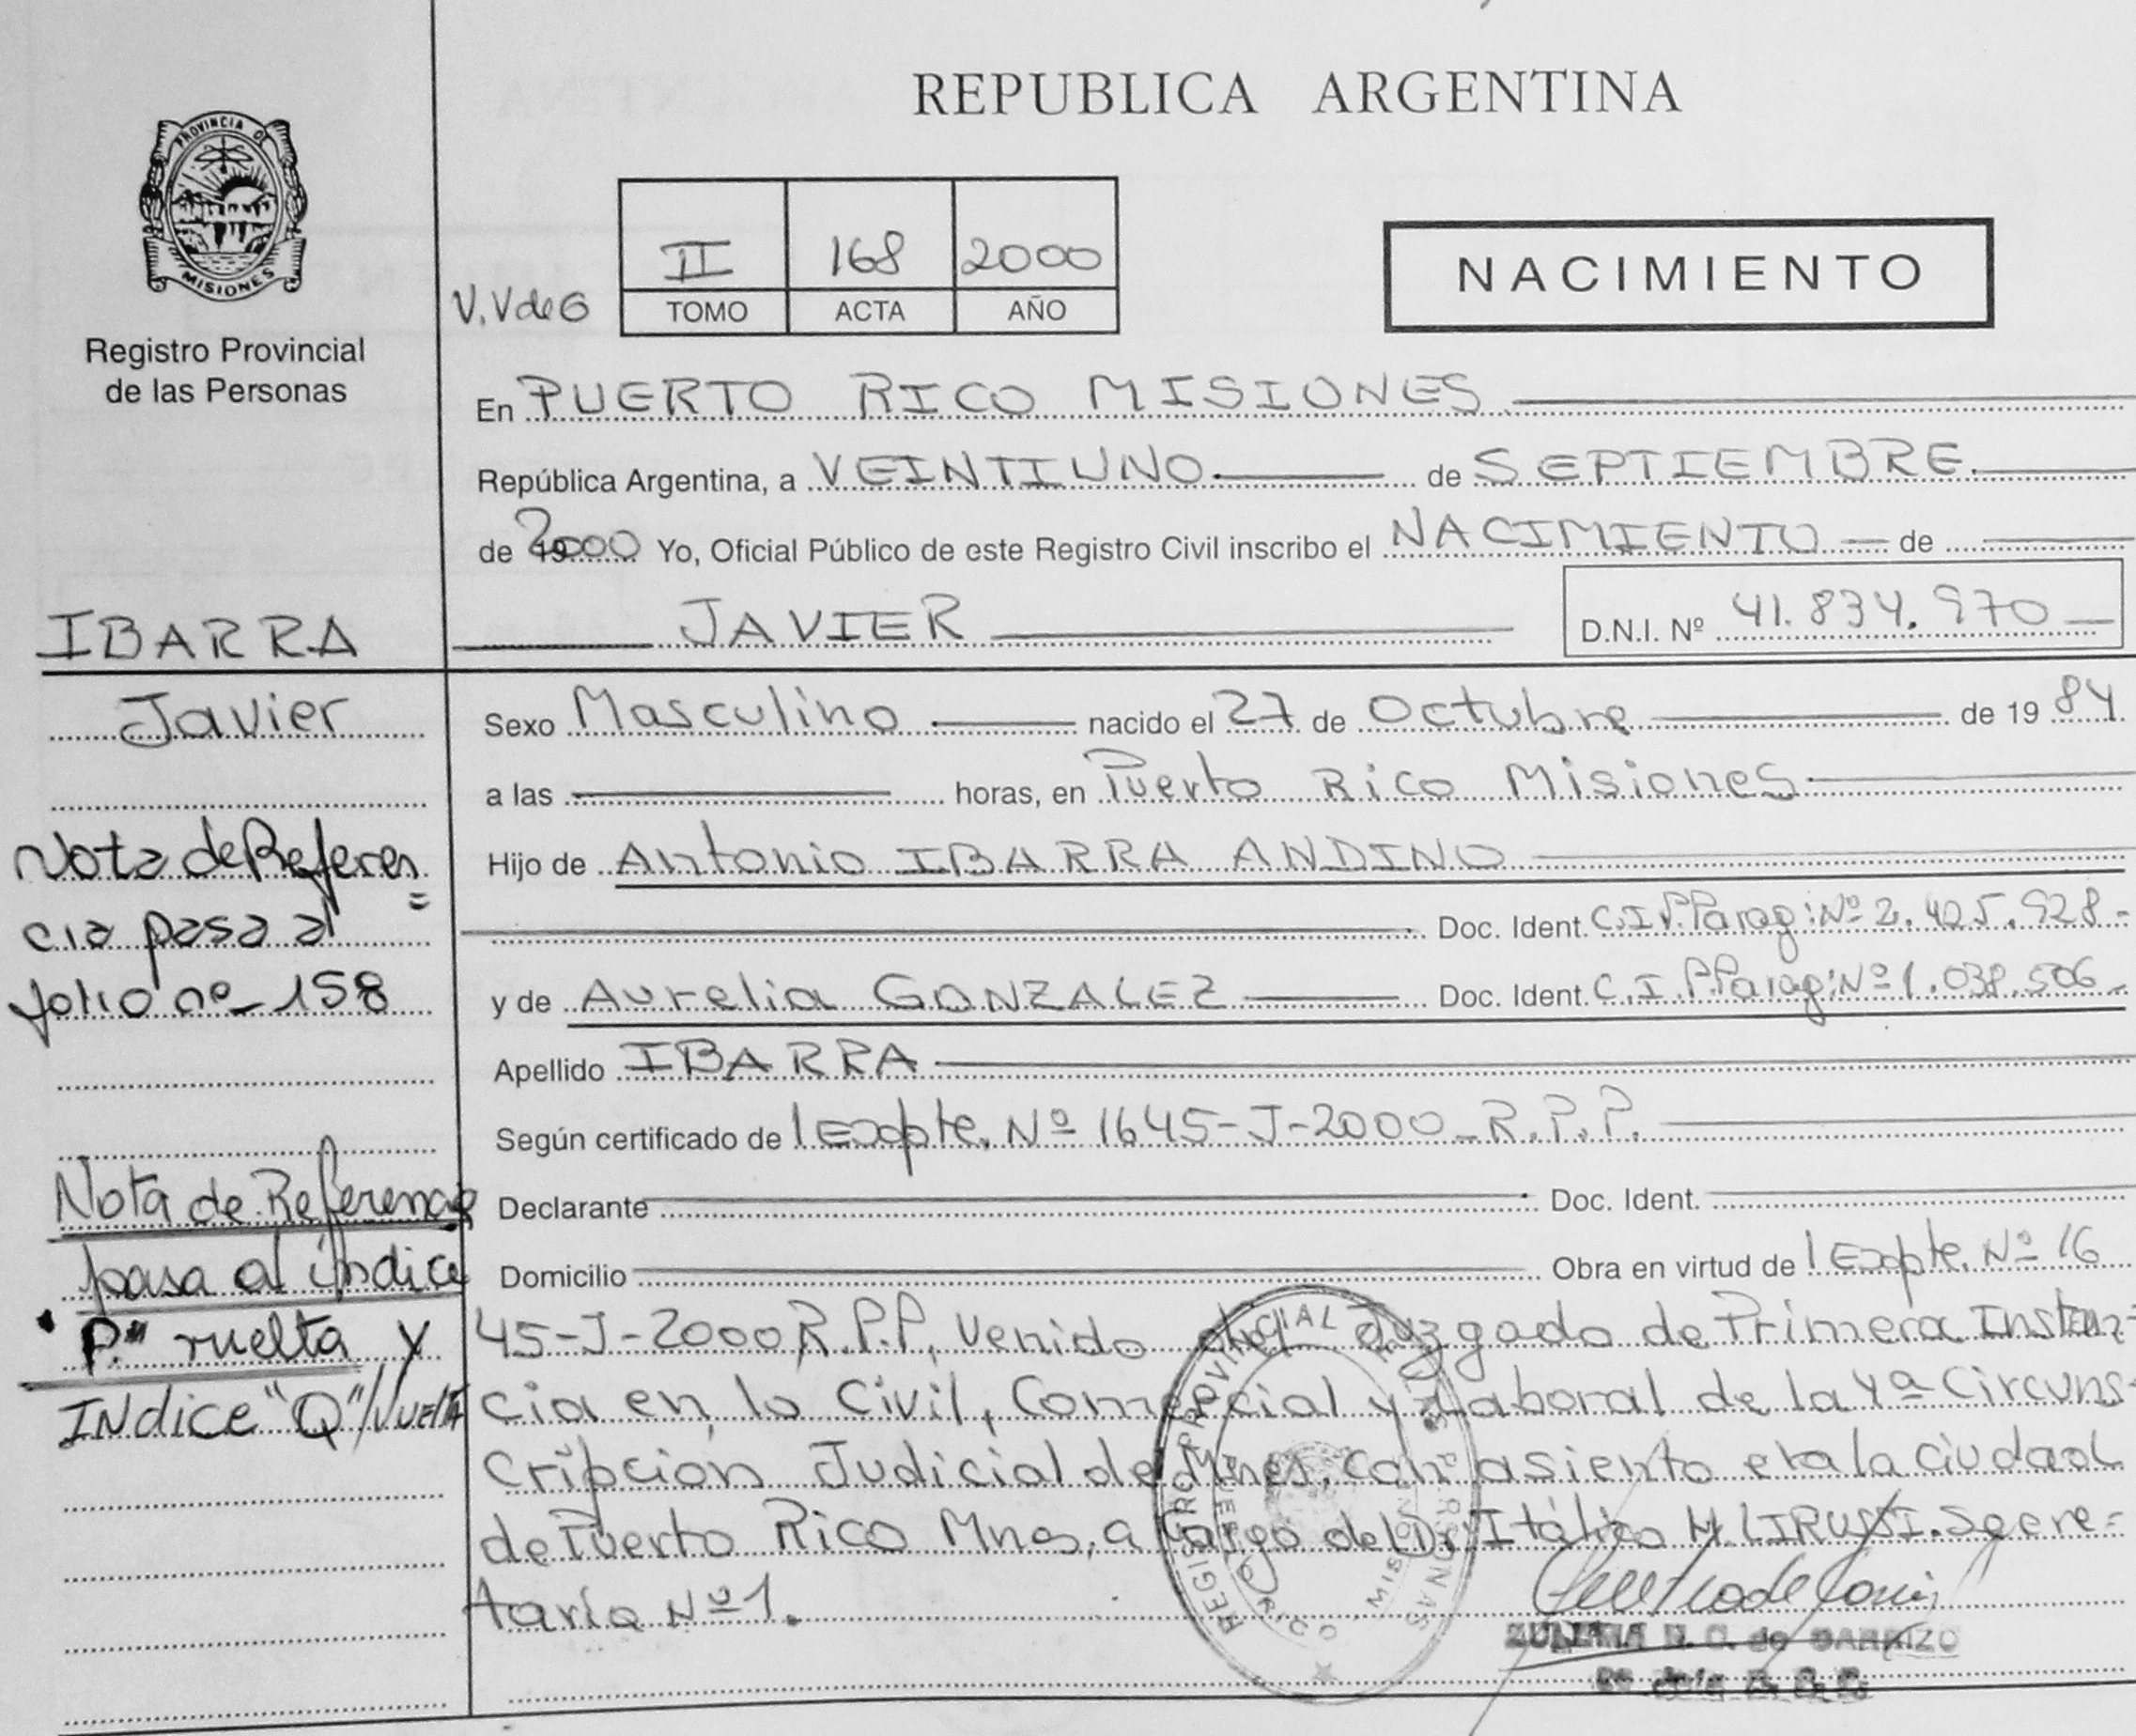 REPUBLICA ARGENTINA
PROVINCIA D
MISIONES
Registro Provincial
de las Personas
V.V de G
II 168 2000
TOMO ACTA AÑO
NACIMIENTO
En PUERTO RICO MISIONES
República Argentina, a VEINTIUNO de SEPTIEMBRE.
de 2000 Yo, Oficial Público de este Registro Civil inscribo el NACIMIENTO de
IBARRA
JAVIER
D.N.I. Nº 41.834.970
Javier
Sexo Masculino nacido el 27 de Octubre de 19 84
a las horas, en Puerto Rico Misiones
Nota de Referen
=
cia pasa al
folio nº 158
Hijo de Antonio IBARRA ANDINO
Doc. Ident. C.I.P.Parag: Nº 2.425.928-
y de Aurelia GONZALEZ Doc. Ident. C.I.P.Parag: Nº 1.038.506-
Apellido IBARRA
Según certificado de Expte. Nº 1645-J-2000-R.P.P.
Nota de Referencia
pasa al índice
vuelta y
INdice "Q"/Vuelta
Declarante Doc. Ident.
Domicilio Obra en virtud de Expte. Nº 16
45-J-2000 R.P.P, Venido del Juzgado de Primera Instan-
cia en lo Civil, Comercial y Laboral de la 4ª Circuns-
cripción Judicial de Mnes, con asiento en la ciudad
de Puerto Rico Mnes, a Cargo del Dr. Itálico M. LIRUSSI. Secre-
taría Nº 1.
REGISTRO PROVINCIAL PERSONAS
PUERTO RICO MISIONES
ZULEMA de